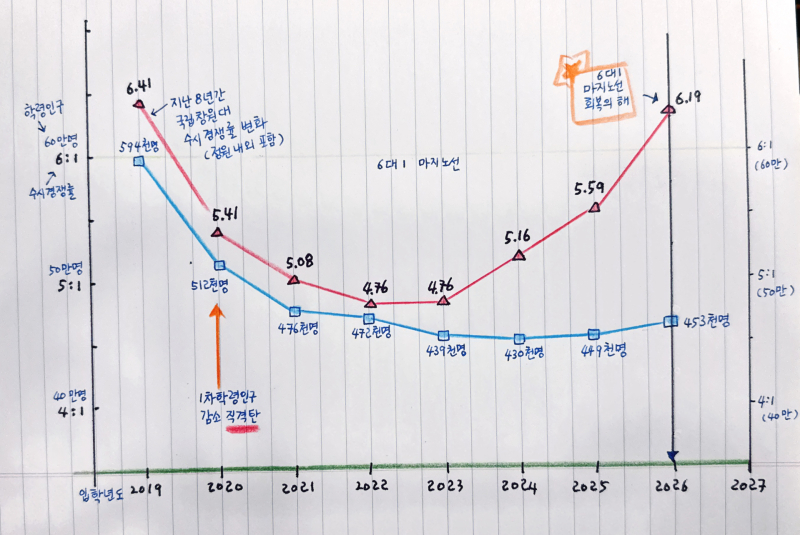 6.41
지난 8년간
국립창원대
수시경쟁률 변화
(정원 내외 포함)
6대1
마지노선
회복의 해
6.19
학령인구
60만명
6:1
수시경쟁률
594천명
6대1 마지노선
6:1
(60만)
5.41
5.08
4.76
4.76
5.16
5.59
50만명
5:1
512천명
476천명
472천명
439천명
430천명
449천명
453천명
5:1
(50만)
1차학령인구
감소 직격탄
40만명
4:1
4:1
(40만)
입학년도 2019 2020 2021 2022 2023 2024 2025 2026 2027